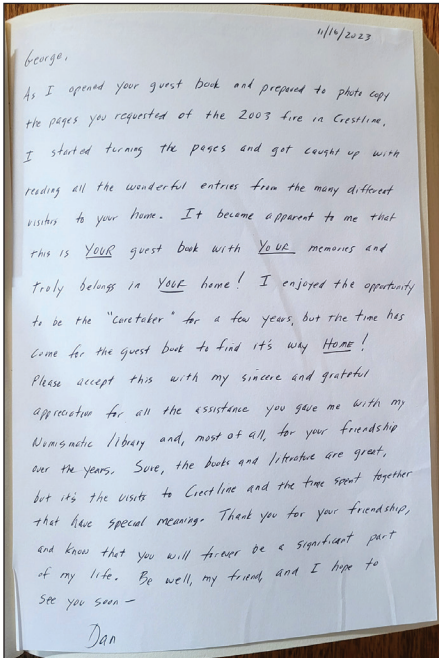 11/16/2023
George,
As I opened your guest book and prepared to photo copy
the pages you requested of the 2003 fire in Crestline,
I started turning the pages and got caught up with
reading all the wonderful entries from the many different
visitors to your home. It became apparent to me that
this is YOUR guest book with YOUR memories and
truly belongs in YOUR home! I enjoyed the opportunity
to be the "caretaker" for a few years, but the time has
come for the guest book to find it's way HOME!
Please accept this with my sincere and grateful
appreciation for all the assistance you gave me with my
Numismatic library and, most of all, for your friendship
over the years. Sure, the books and literature are great,
but it's the visits to Crestline and the time spent together
that have special meaning. Thank you for your friendship,
and know that you will forever be a significant part
of my life. Be well, my friend, and I hope to
see you soon —
Dan